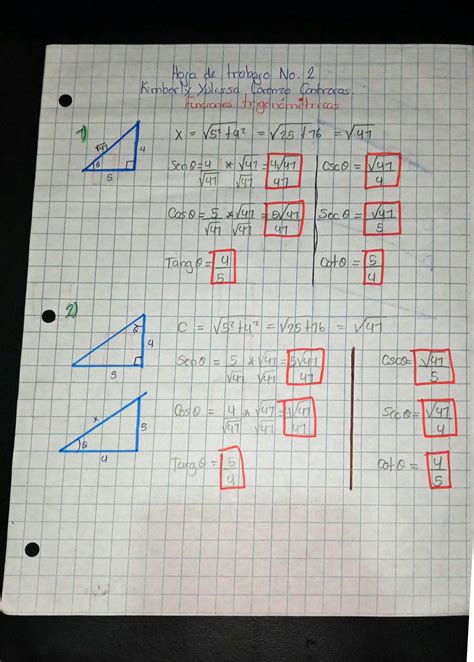 Hoja de trabajo No. 2
Kimberly Yulissa Lorenzo Contreras.
Funciones trigonométricas
1)
√41
4
θ
5
X = √5²+4² = √25+16 = √41
Senθ = 4/√41 * √41/√41 = 4√41/41
Cscθ = √41/4
Cosθ = 5/√41 * √41/√41 = 5√41/41
Secθ = √41/5
Tangθ = 4/5
Cotθ = 5/4
2)
θ
4
5
C = √5²+4² = √25+16 = √41
Senθ = 5/√41 * √41/√41 = 5√41/41
Cscθ = √41/5
x
5
θ
4
Cosθ = 4/√41 * √41/√41 = 4√41/41
Secθ = √41/4
Tangθ = 5/4
Cotθ = 4/5